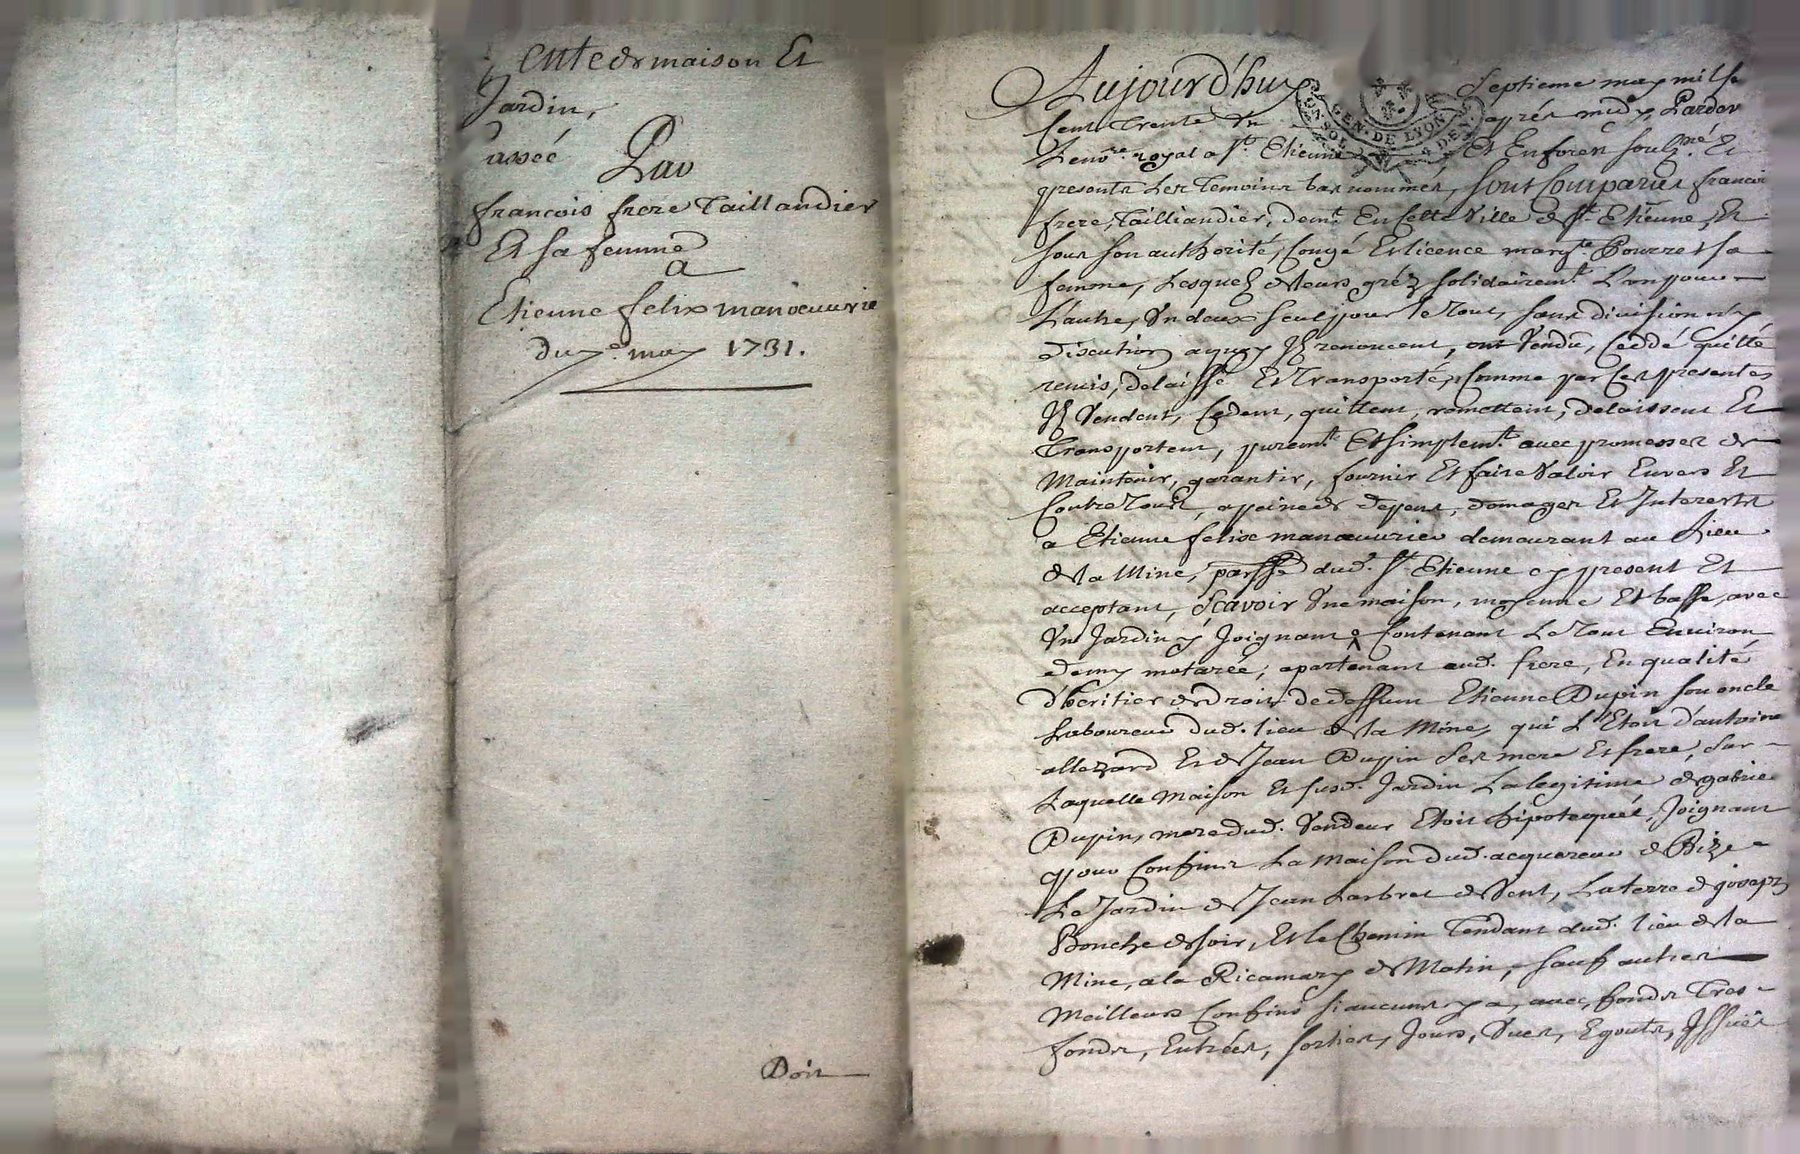 ente de maison Et
Jardin,
passé
Par
francois frere Taillandier
Et sa femme
a
Etienne felix manoeuvrie
du 7e. may 1731.
Doit
Aujourd'huy Septieme may mil sept
Cent Trente Un aprés midy, Pardev
Le nore. royal a St. Etienne Et En forest soubzné. Et
presents Les Temoins bas nommés, Sont Comparus francois
frere, Tailliandier, demt. En Cette Ville de St. Etienne, Et
sous son authorité, Congé Et licence margte. Pourret sa
femme, Lesquelz de leurs gréz solidairemt. L'un pour
L'autre, Un deux seul pour le Tout, sans division ny
discution aquoy Ilz renoncent, ont Vendu, Ceddé quitté
remis, delaissé Et Transporté, Comme par Ces presentes
Ilz Vendent, Cedent, quittent, remettent, delaissent Et
Transportent, puremt. Et simplemt. avec promesses de
Maintenir, garantir, fournir Et faire Valoir Envers Et
Contre Tous, a peine de depens, domages Et Interests
a Etienne felix manoeuvrier demeurant au Lieu
de la Mine, parsse dud. St. Etienne cy present Et
acceptant, Sçavoir Une maison, moyenne Et basse, avec
Un Jardin y Joignant Contenant Le Tout Environ
demy metarée, apartenant aud. frere, En qualité
d'heritier de droit de deffunt Etienne Dupin son oncle
Laboureur dud. lieu de la Mine, qui L'Etoit d'antoine
allezard Et de Jean Dupin Ses mere Et frere, Sur
Laquelle Maison Et susd. Jardin La legitime de gabrie
Dupin, mere dud. Vendeur Etoit hipotequée, Joignant
pour Confins La Maison dud. acquereur de Bize
Le Jardin de Jean Larbret de Vent, La terre de joseph
Bonche de soir, Et le Chemin Tendant dud. lieu de la
Mine, a la Ricamary de Matin, sauf autres
Meilleurs Confins si aucuns y a, avec fonds Tres
fonds, Entrées, sorties, Jours, Vues, Egouts, Issües
GEN. DE LYON